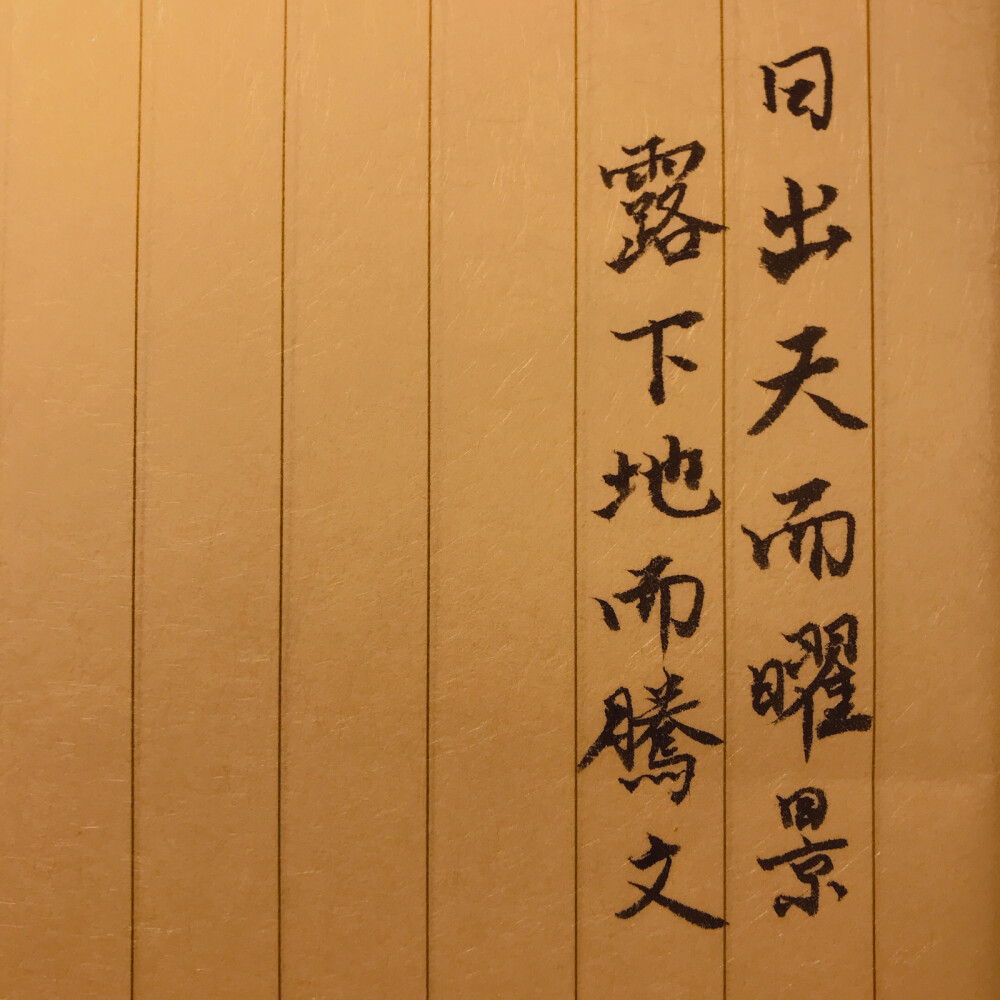 日出天而曜景
露下地而騰文